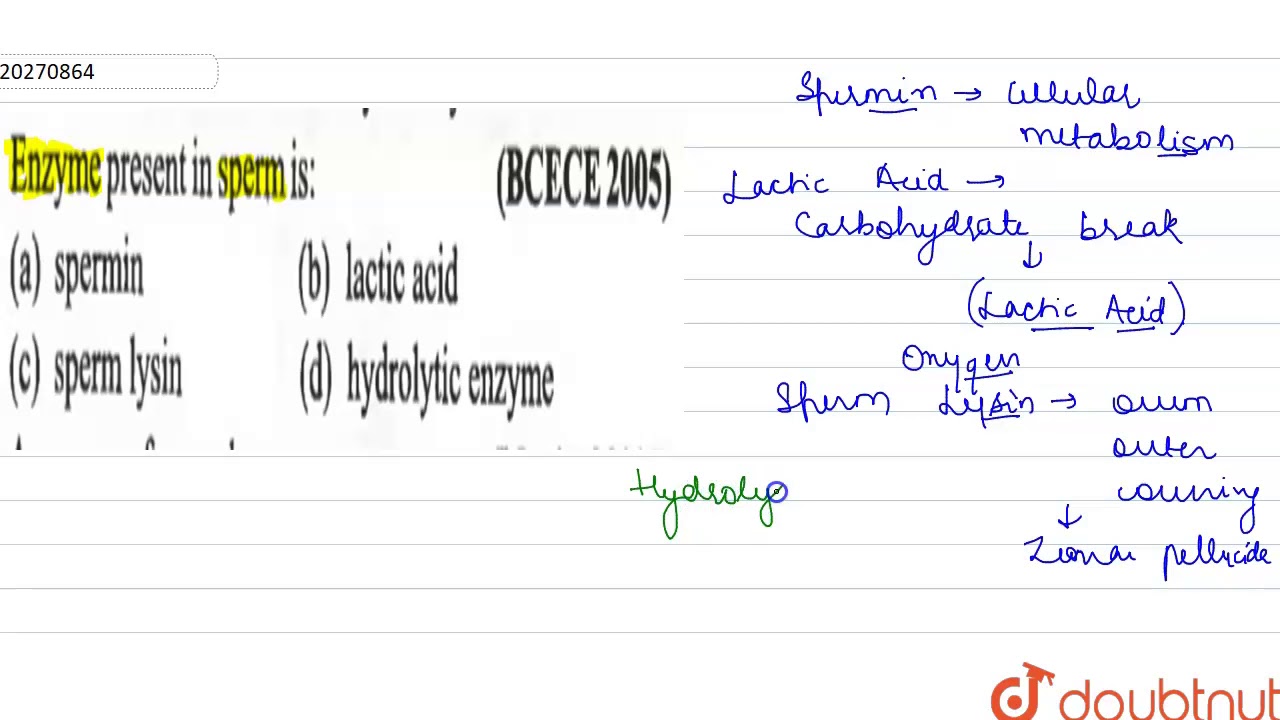 20270864
Enzyme present in sperm is: (BCECE 2005)
(a) spermin (b) lactic acid
(c) sperm lysin (d) hydrolytic enzyme
Spermin → cellular
metabolism
Lactic Acid →
Carbohydrate break
↓
(Lactic Acid)
Oxygen
Sperm Lysin → ovum
outer
covering
↓
Zonar pellucide
Hydroly
doubtnut